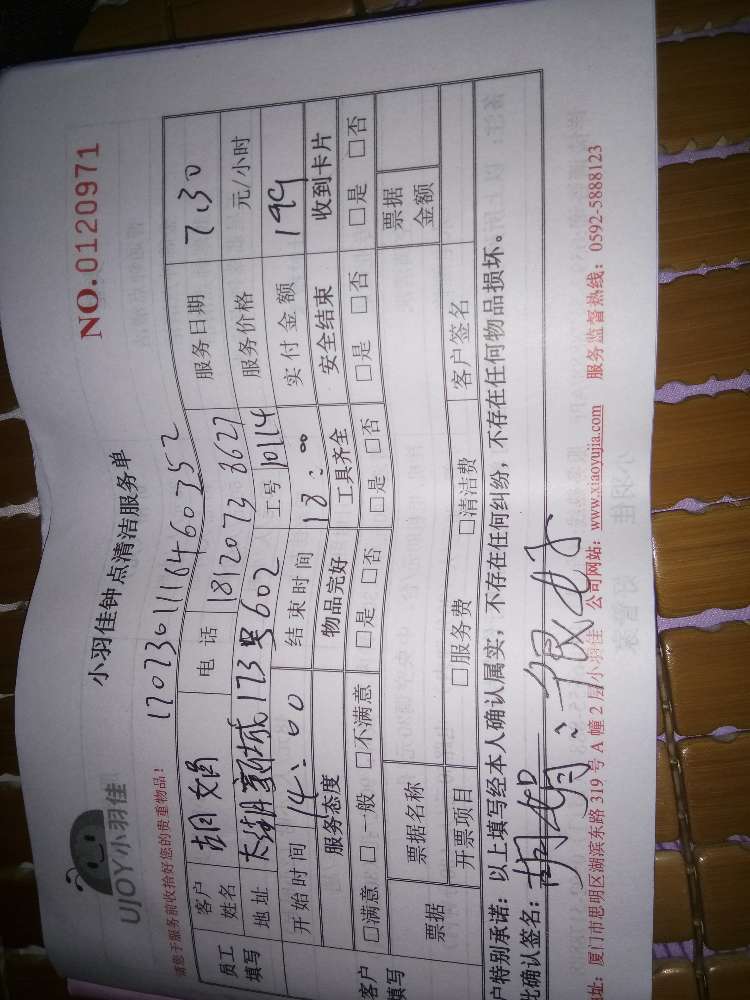 UJOY小羽佳
小羽佳钟点清洁服务单
NO.0120971
请您于服务前收拾好您的贵重物品!
170730111646 0752
员工填写
客户姓名 胡娟 电话 18120738627 服务日期 7.30
地址 大湖新城173号602 工号 10114 服务价格 元/小时
开始时间 14:00 结束时间 18:00 实付金额 199
客户填写
服务态度 物品完好 工具齐全 安全结束 收到卡片
□满意 □一般 □不满意 □是 □否 □是 □否 □是 □否 □是 □否
票据 票据名称 票据金额
开票项目 □服务费 □清洁费 客户签名
户特别承诺:以上填写经本人确认属实,不存在任何纠纷,不存在任何物品损坏。
此确认签名:胡娟:很好
址:厦门市思明区湖滨东路319号A幢2层小羽佳 公司网站:www.xiaoyujia.com 服务监督热线:0592-5888123